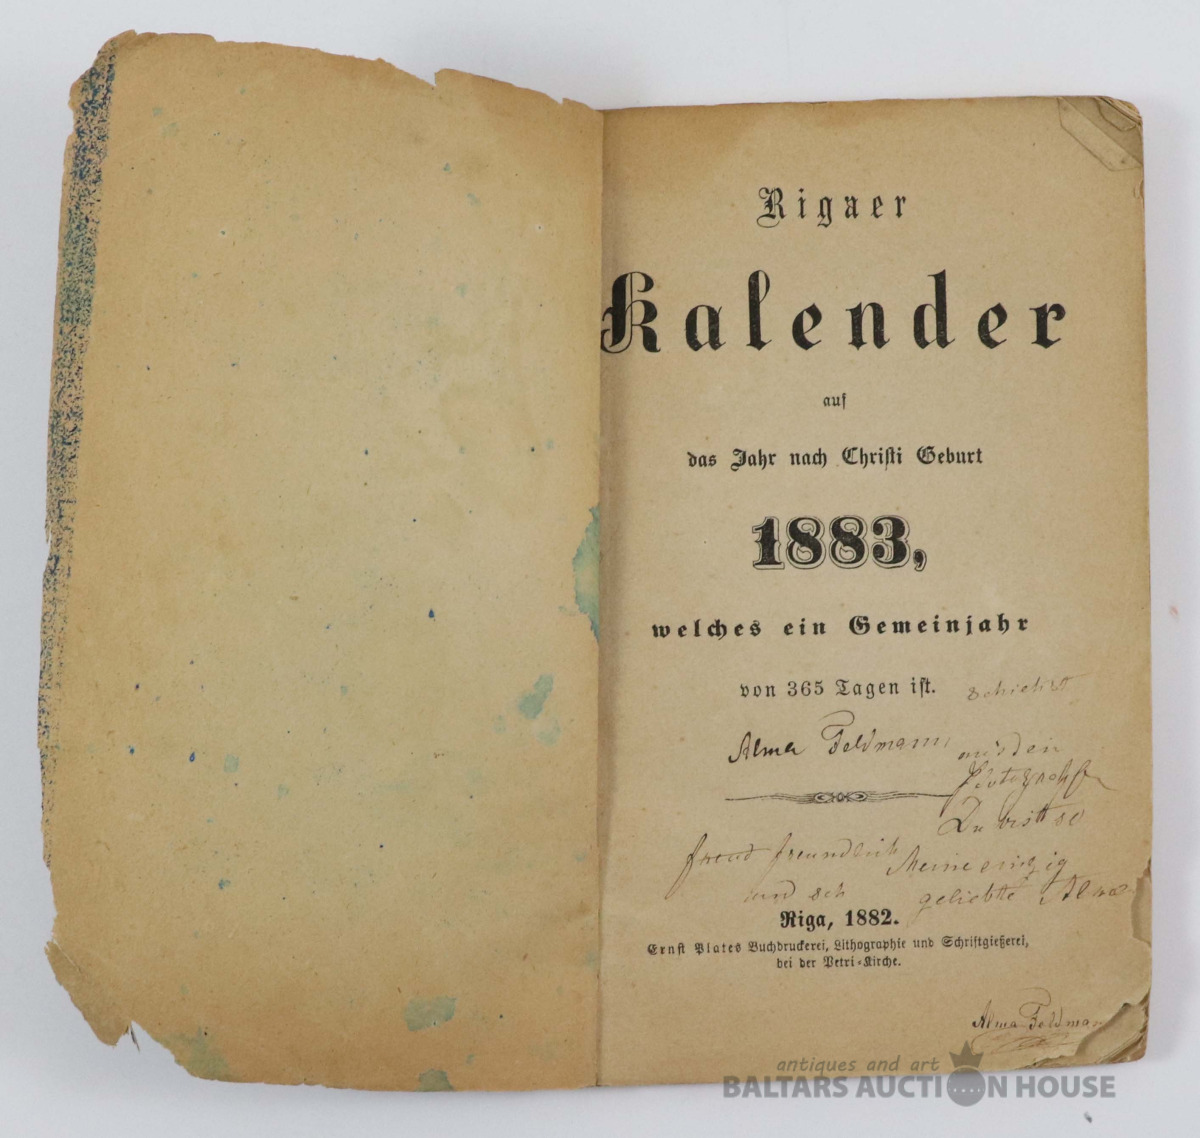 Rigaer
Kalender
auf
das Jahr nach Christi Geburt
1883,
welches ein Gemeinjahr
von 365 Tagen ist.
Alma Feldmann
Du bist so
freundlich Meine einzig
und geliebte Alma
Riga, 1882.
Ernst Plates Buchdruckerei, Lithographie und Schriftgießerei,
bei der Petri-Kirche.
Alma Feldmann
antiques and art
BALTARS AUCTION HOUSE